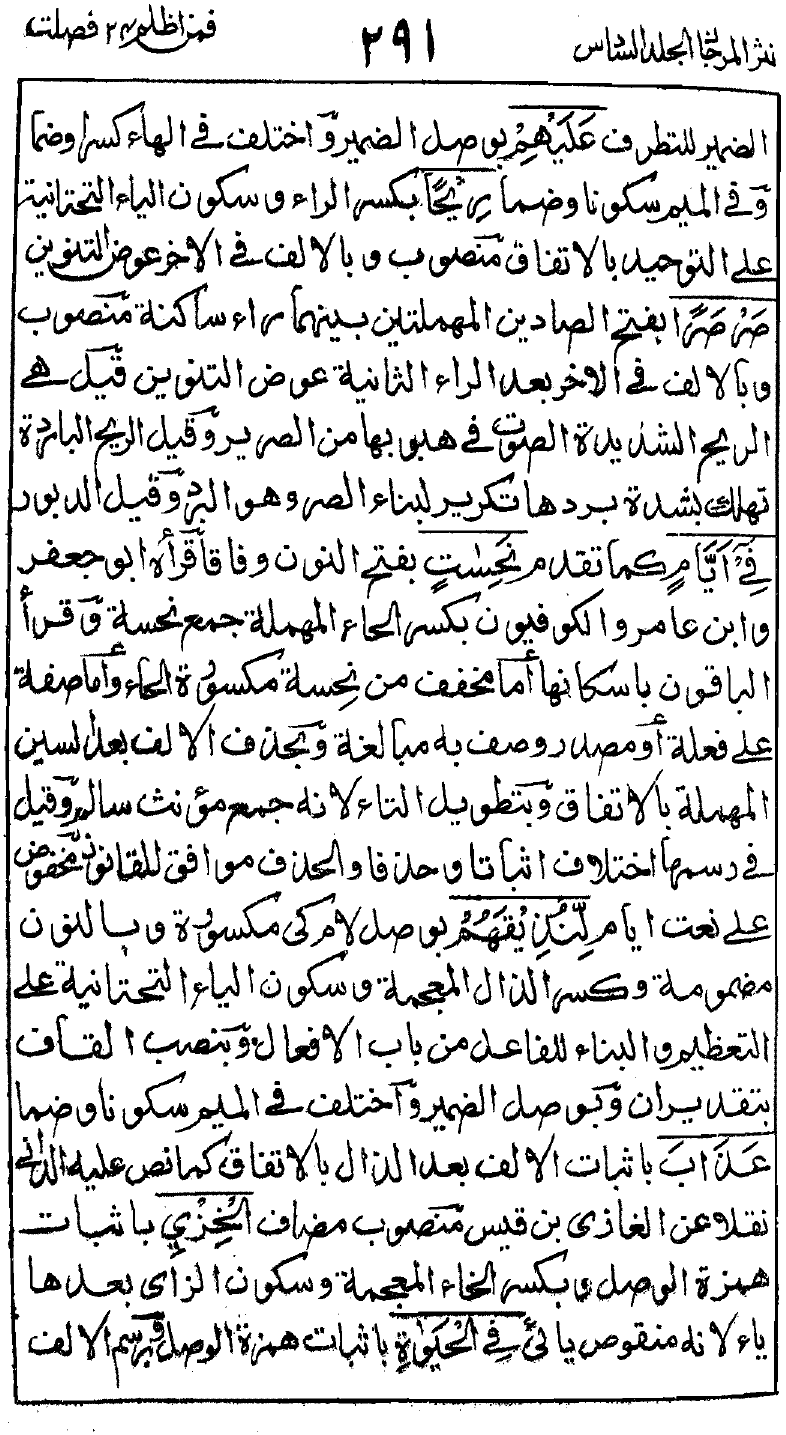 نثر المرجان الجلد السادس ٢٩١ فمن اظلم ٢٤ فصلت
الضمير للتطرف عَلَيْهِمْ بوصل الضمير وَاختلف فى الهاء كسرا وضما
وَفى الميم سكونا وضما رِيْحًا بكسر الراء وسكون الياء التحتانية
على التوحيد بالاتفاق مَنصوب وبالالف فى الاخر عوض التنوين
صَرْصَرًا بفتح الصادين المهملتين بينهما راء ساكنة مَنصوب
وبالالف فى الاخر بعد الراء الثانية عوض التنوين قَيل هے
الريح الشديدة الصوت فى هبوبها من الصرير وَقيل الريح الباردة
تهلك بشدة بردها تكرير لبناء الصر وهو البرد وَقيل الدبور
فِيْٓ اَيَّامٍ كما تقدم نَحِسٰتٍ بفتح النون وفاقا قَرأه ابو جعفر
وابن عامر والكوفيون بكسر الحاء المهملة جمع نحسة وَقرأ
الباقون باسكانها أما مخفف من نحِسة مكسورة الحاء وأما صفة
على فعلة أو مصدر وصف به مبالغة وَبحذف الالف بعد السين
المهملة بالاتفاق وَبتطويل التاء لانه جمع مؤنث سالم وَقيل
فى رسمها اختلاف اثباتا وحذفا والحذف موافق للقانون مَخفوض
على نعت ايام لِّنُذِيْقَهُمْ بوصل لام كى مكسورة وبالنون
مضمومة وكسر الذال المعجمة وسكون الياء التحتانية على
التعظيم والبناء للفاعل من باب الافعال وَبنصب القاف
بتقدير ان وَبوصل الضمير وَاختلف فى الميم سكونا وضما
عَذَابَ باثبات الالف بعد الذال بالاتفاق كما نص عليه الدانى
نقلا عن الغازى بن قيس مَنصوب مضاف الْخِزْيِ باثبات
همزة الوصل وبكسر الخاء المعجمة وسكون الزاى بعدها
ياء لانه منقوص يائى فِى الْحَيٰوةِ باثبات همزة الوصل وَبرسم الالف